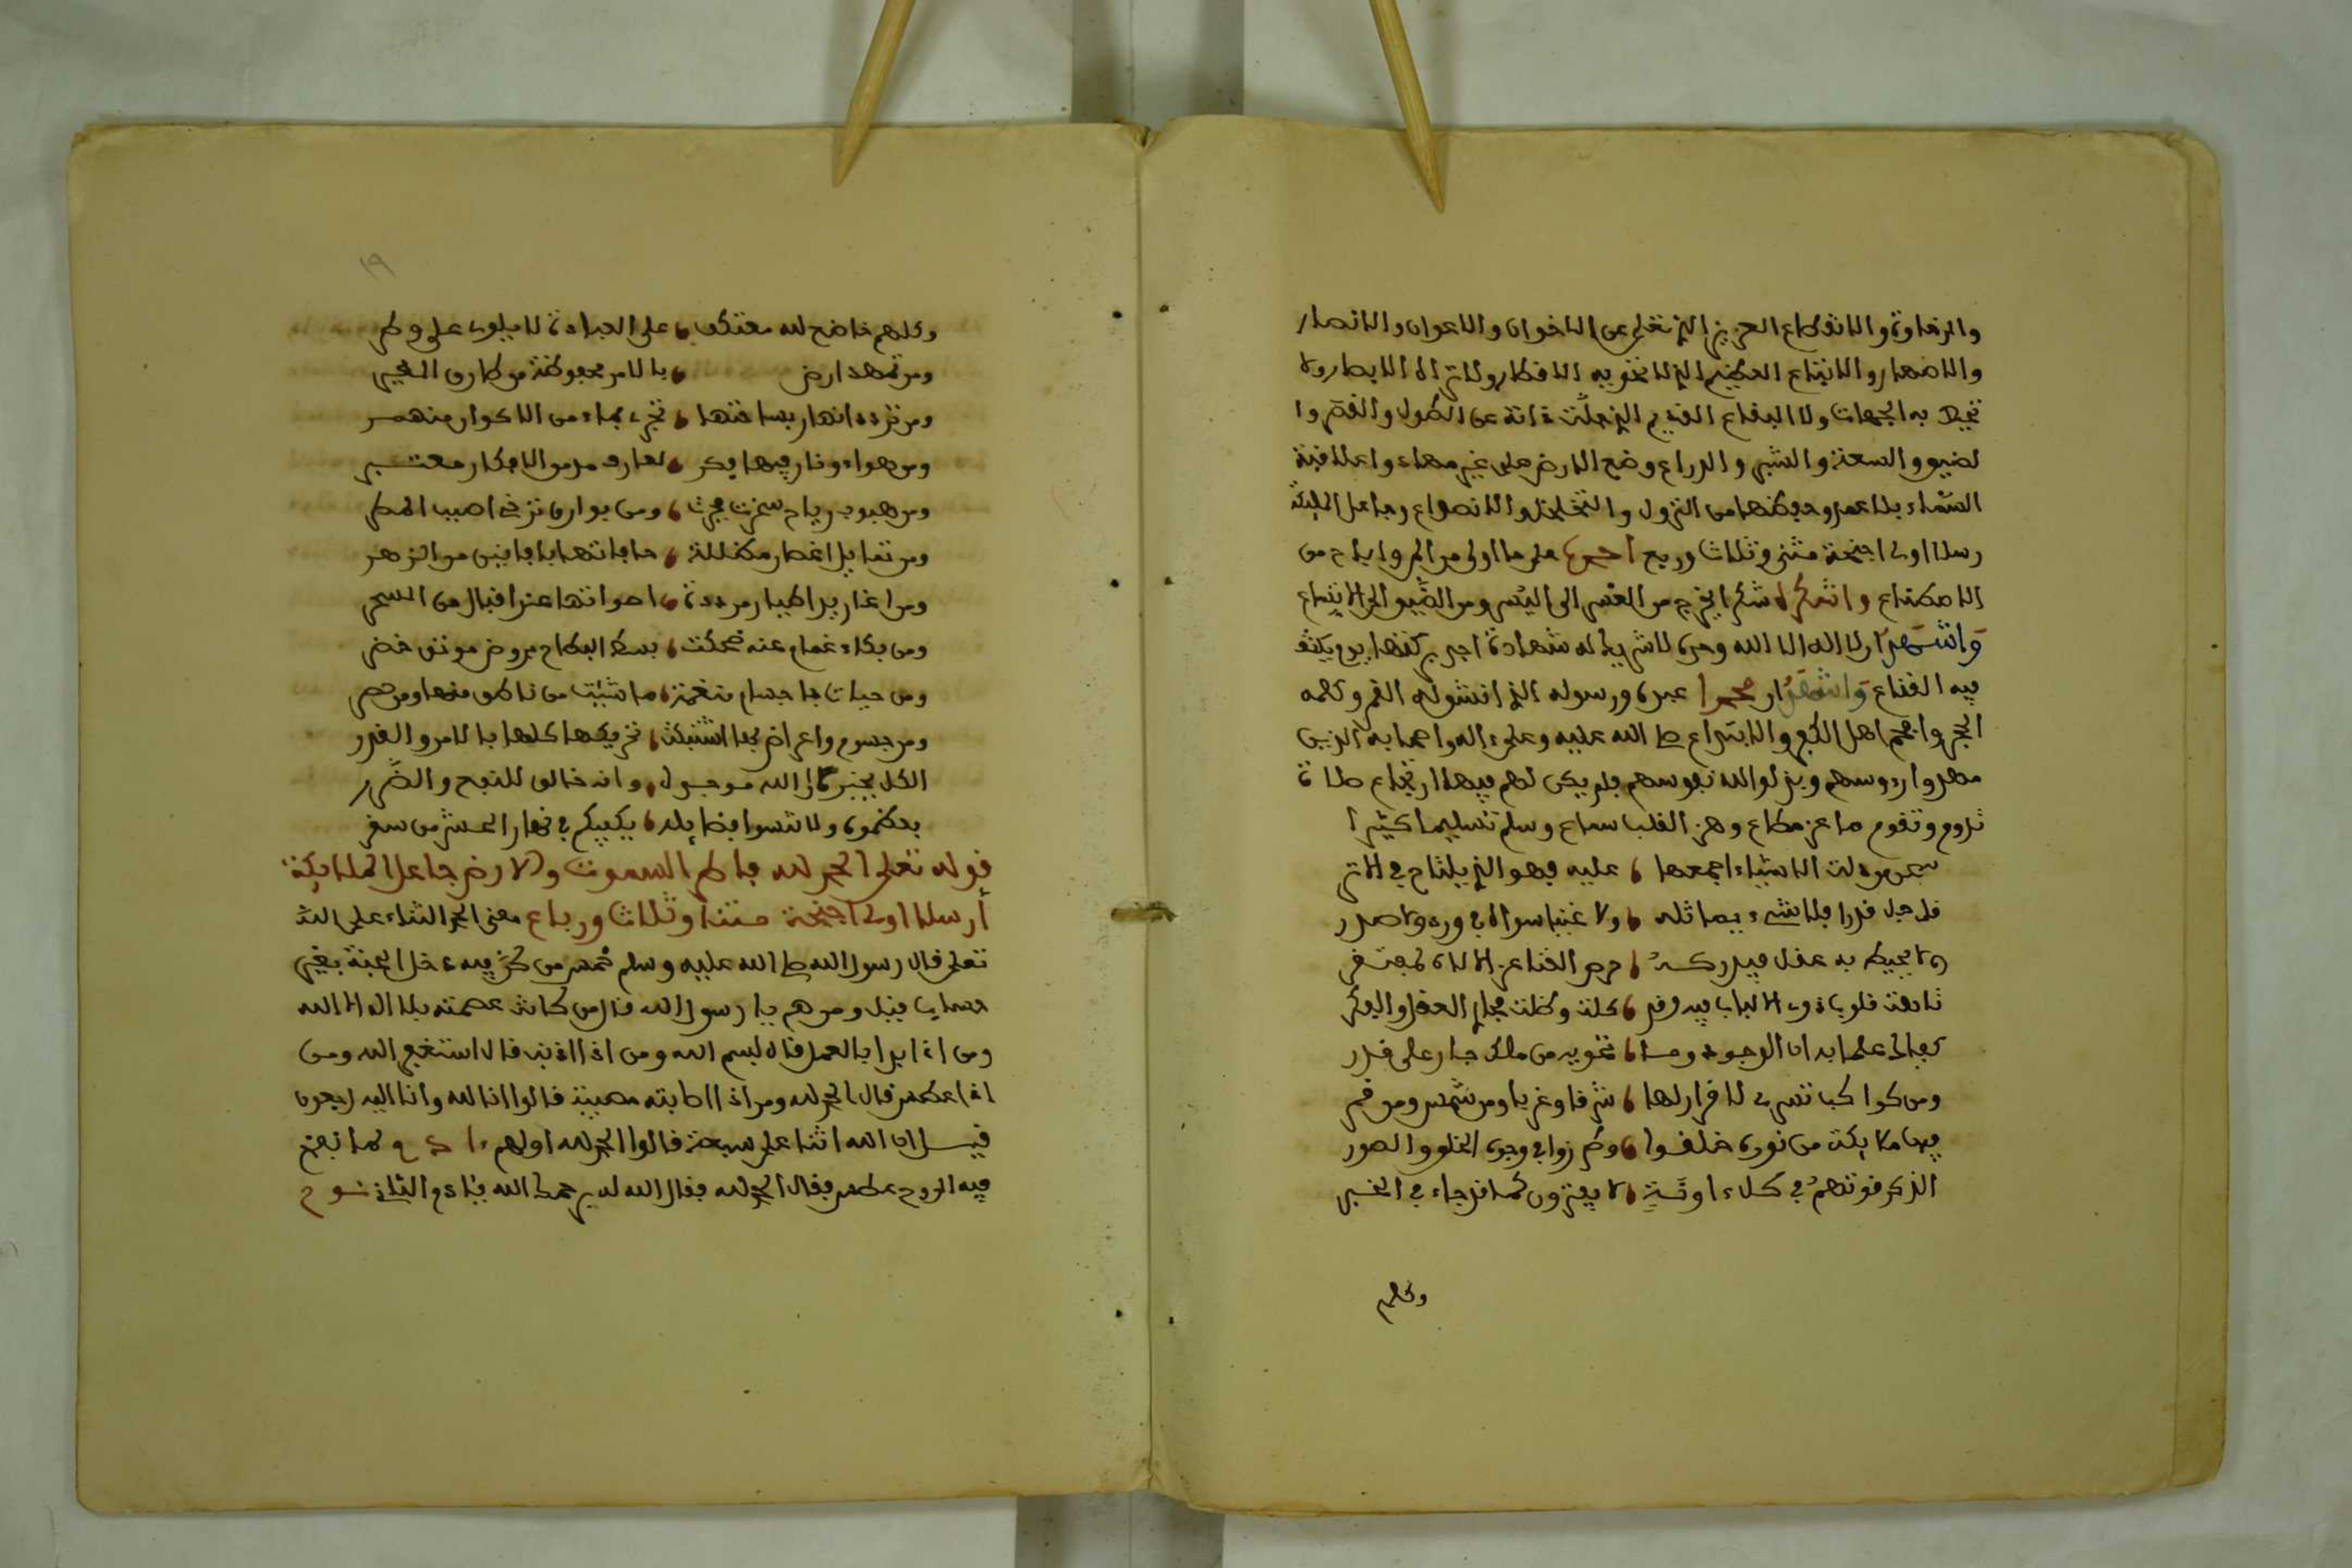 والرخاوة والانقطاع العزيز الذي تعلى عن الاخوان والاعوان والانصار
والاضهار والاتباع العظيم الذي لا تحويه الافكار ولا تراه الابصار ولا
تحيط به الجهات ولا البقاع القديم الذي جلت ذاته عن الطول والقصر وا
لضيق والسعة والشبر والذراع وضع الارض على غير مهاد واعلا قبة
السماء بلا عمد وحفظها من النزول والتخلخل والانصداع وجاعل الملئكة
رسلا اولى اجنحة مثنى وثلاث وربع احمده على ما اولى من البر واباح من
الاصطناع واشكره شكرا يخرج من العسر الى اليسر ومن الضيق الى الاتساع
واشهد ان لا اله الا الله وحده لا شريك له شهادة اجدبر كتها يوم يكشف
فيه القناع واشهد ان محمدا عبده ورسوله الذي انشق له القمر وكلمه
الحجر واهل الابتداع صلى الله عليه وعلى ءاله واصحابه الذين
مهدوا رءوسهم وبذلوا لله نفوسهم فلم يكن لهم فيها ارتجاع صلاة
تدوم وتقوم ما عز مطاع وهز القلب سماع وسلم تسليما كثيرا
سبحن من دلت الاشياء اجمعها عليه فهو الذي يلتاح في الاثر
قد جل قدرا فلا شيء يماثله ولا غنيا سواه في ورد وفا صدر
ولا يحيط به عقل فيدركه
تاهت قلوب ذوى الالباب فيه وقد كلت وظلت مجار العقل والفكر
كفا لى علما بد ان الوجود وما تحويه من ملك جار على قدر
ومن كواكب تسرى لا قرار لها شرقا وغربا ومن شمس ومن قمر
فيها ملايكة من نوره خلقوا وكم زوا في وجوه الخلق والصور
الذكر قوتهم في كل ءاونة لا يفترون كما قد جاء في الخبر
وكلهم
١٩
وكلهم خاضع لله معتكف على العبادة لا يلوى على وطر
ومن تمهد ارض بالامر محفوظة من طارق الغير
ومن تردد انهار بساحتها تجرى بماء من الاكوار منهمر
ومن هواء ونار فيهما فكر لعارف من مر الافكار معتبر
ومن هبوب رياح سخرت فجرت ومن بوارق تزجى اصيب المطر
ومن تمايل اغصان مكللة حافاتها بافانين من الزهر
ومن اغاريد اطيار مرددة اصواتها عند اقبال من السحر
ومن بكاء غمام عنه ضحكت بسط البطاح بروض مونق خضر
ومن حيات باجسام منعمة ما شئت من ناطق منها ومن حصر
ومن جسوم واعراض بها اشتبكت تحريكها كلها بالامر والقدر
الكل يخبر ان الله موجده وانه خالق للنفع والضرر
فعظموه ولا تنسوا فضايله يكفيكم في نهار الحشر من سقر
قوله تعلى الحمد لله فاطر السموت والارض جاعل الملايكة
رسلا اولى اجنحة مثنا وثلاث ورباع معنى الحمد الثناء على الله
تعلى قال رسول الله صلى الله عليه وسلم خمس من كن فيه دخل الجنة بغير
حساب قيل ومن هم يا رسول الله قال من كانت عصمته بلا اله الا الله
ومن اذا بدا بالعمل قال بسم الله ومن اذا اذنب قال استغفر الله ومن
اذا عطس قال الحمد لله ومن اذا اصابته مصيبة قالوا انا لله وانا اليه رجعون
قيل ان الله اثنا على سبعة قالوا الحمد لله اولهم ءادم لما نفخ
فيه الروح عطس فقال الحمد لله فقال الله له يرحمك الله يا ءادم الثانى نوح